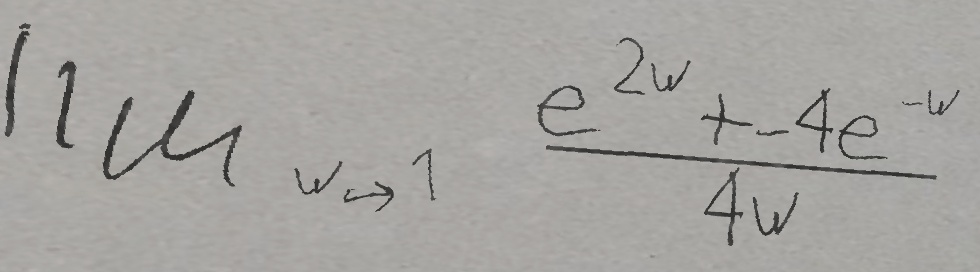 \lim_{w \to 1} \frac{e^{2w} + -4e^{-w}}{4w}